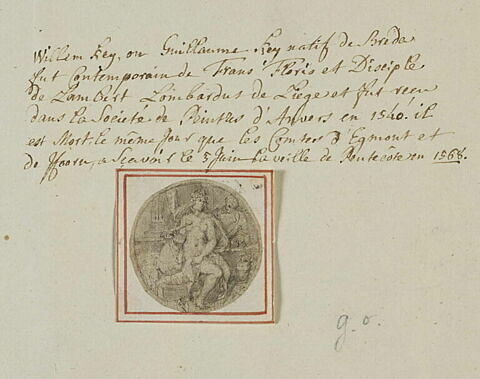 Willem Key, ou Guillaume Key natif de Breda
fut Contemporain de Frans Floris et Disciple
de Lambert Lombardus de Liege et fut recu
dans la Societé de Peintres d'Anvers en 1540. il
est Mort le même Jour que les Comtes d'Egmont et
de Hoorn, a Scavoir le 5 Juin la veille de Pentecôte en 1568.
g. o.